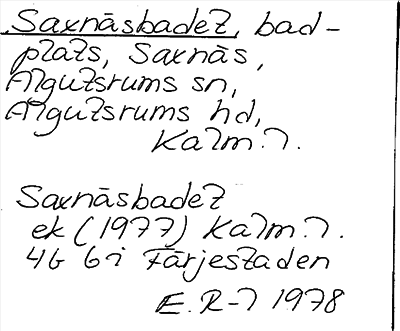 Saxnäsbadet, bad-
plats, Saxnäs,
Algutsrums sn,
Algutsrums hd,
Kalm. l.
Saxnäsbadet
ek (1977) Kalm. l.
4G 6i Färjestaden
E. R-l 1978